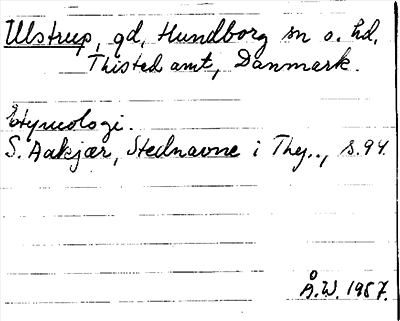 Ulstrup, gd, Hundborg sn o. hd,
Thisted amt, Danmark.
Etymologi.
S. Aakjær, Stednavne i Thy.., s.94.
Å.W. 1987.